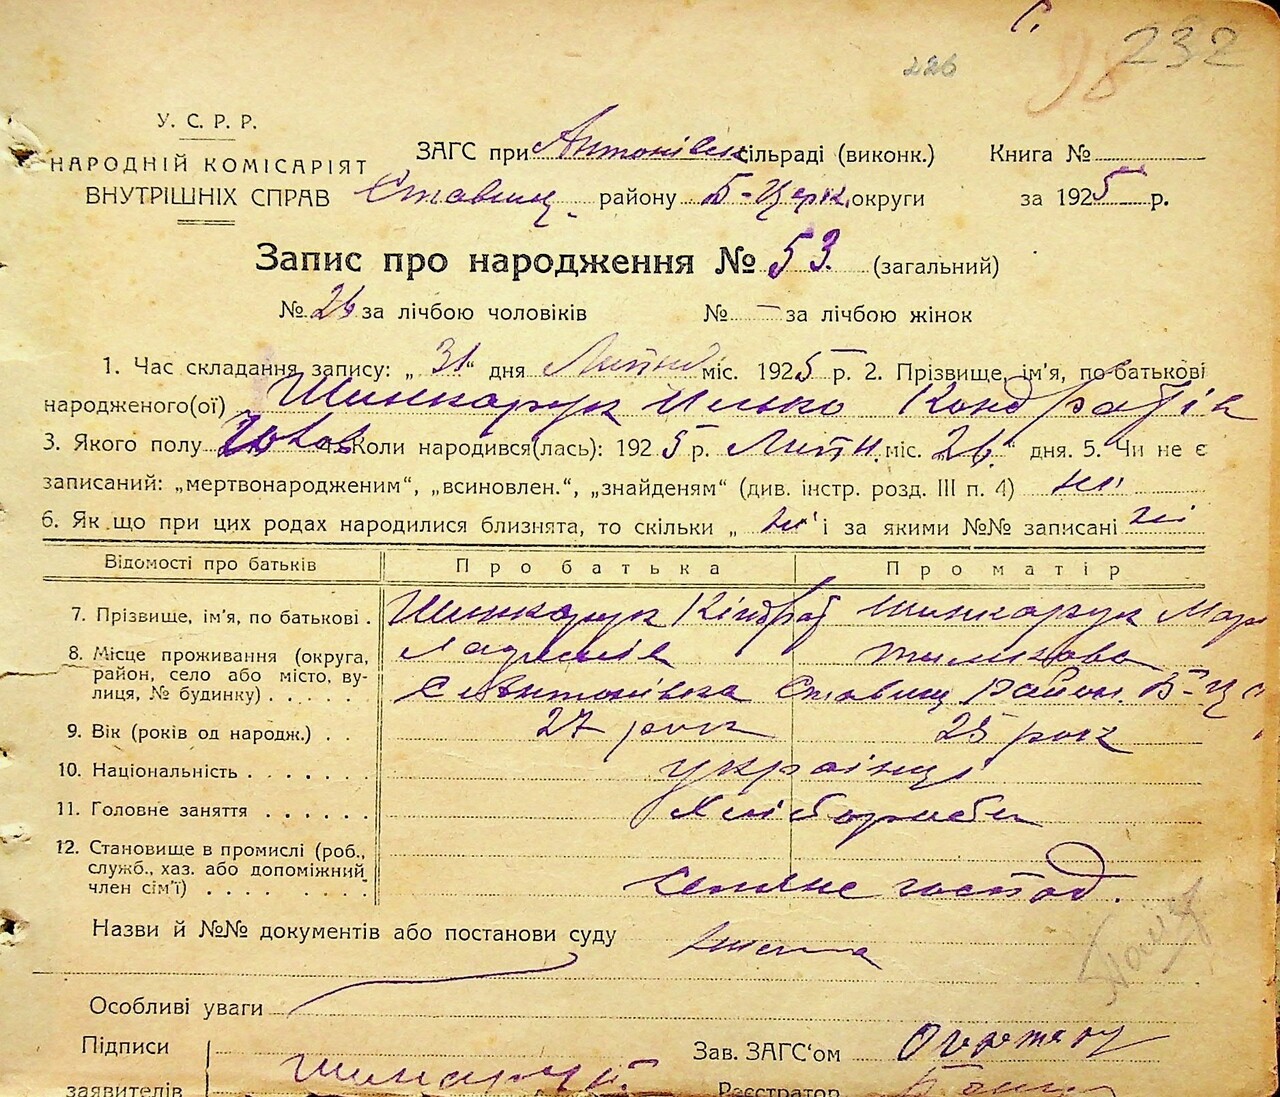 С.
226 98 232
У. С. Р. Р.
НАРОДНІЙ КОМІСАРІЯТ
ВНУТРІШНІХ СПРАВ
ЗАГС при Антонівск сільраді (виконк.) Книга №
Ставищ. району Б-Церк. округи за 1925 р.
Запис про народження № 53. (загальний)
№ 26 за лічбою чоловіків № — за лічбою жінок
1. Час складання запису: „31“ дня Липня міс. 1925 р. 2. Прізвище, ім'я, по-батькові
народженого(ої) Шинкарук Илько Кондратів
3. Якого полу чолов 4. Коли народився(лась): 1925 р. Липн. міс. „26.“ дня. 5. Чи не є
записаний: „мертвонародженим“, „всиновлен.“, „знайденям“ (див. інстр. розд. III п. 4) ні
6. Як що при цих родах народилися близнята, то скільки „ні“ і за якими №№ записані ні
Відомості про батьків Про батька Про матір
7. Прізвище, ім'я, по батькові . Шинкарук Кіндрат Шинкарук Мар
8. Місце проживання (округа,
район, село або місто, ву-
лиця, № будинку) . . . . . С Антонівка Ставищ район. Б-Ц
9. Вік (років од народж.) . . 27 рок 25 рок
10. Національність . . . . . . . українці
11. Головне заняття . . . . . . Хлібороби
12. Становище в промислі (роб.,
служб., хаз. або допоміжний
член сім'ї) . . . . . . . господ.
Назви й №№ документів або постанови суду
Особливі уваги
Підписи Зав. ЗАГС'ом
заявителів Реєстратор